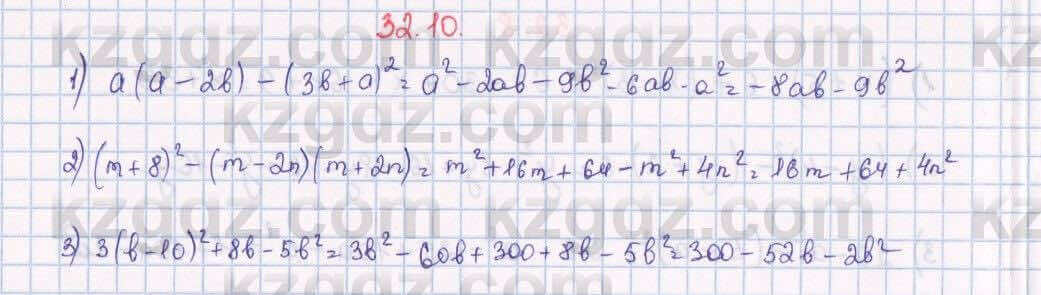 32.10.
1) a(a-2b)-(3b+a)²=a²-2ab-9b²-6ab-a²=-8ab-9b²
2) (m+8)²-(m-2n)(m+2n)=m²+16m+64-m²+4n²=16m+64+4n²
3) 3(b-10)²+8b-5b²=3b²-60b+300+8b-5b²=300-52b-2b²
kzgdz.com
kzgdz.com
kzgdz.com
kzgdz.com
kzgdz.com